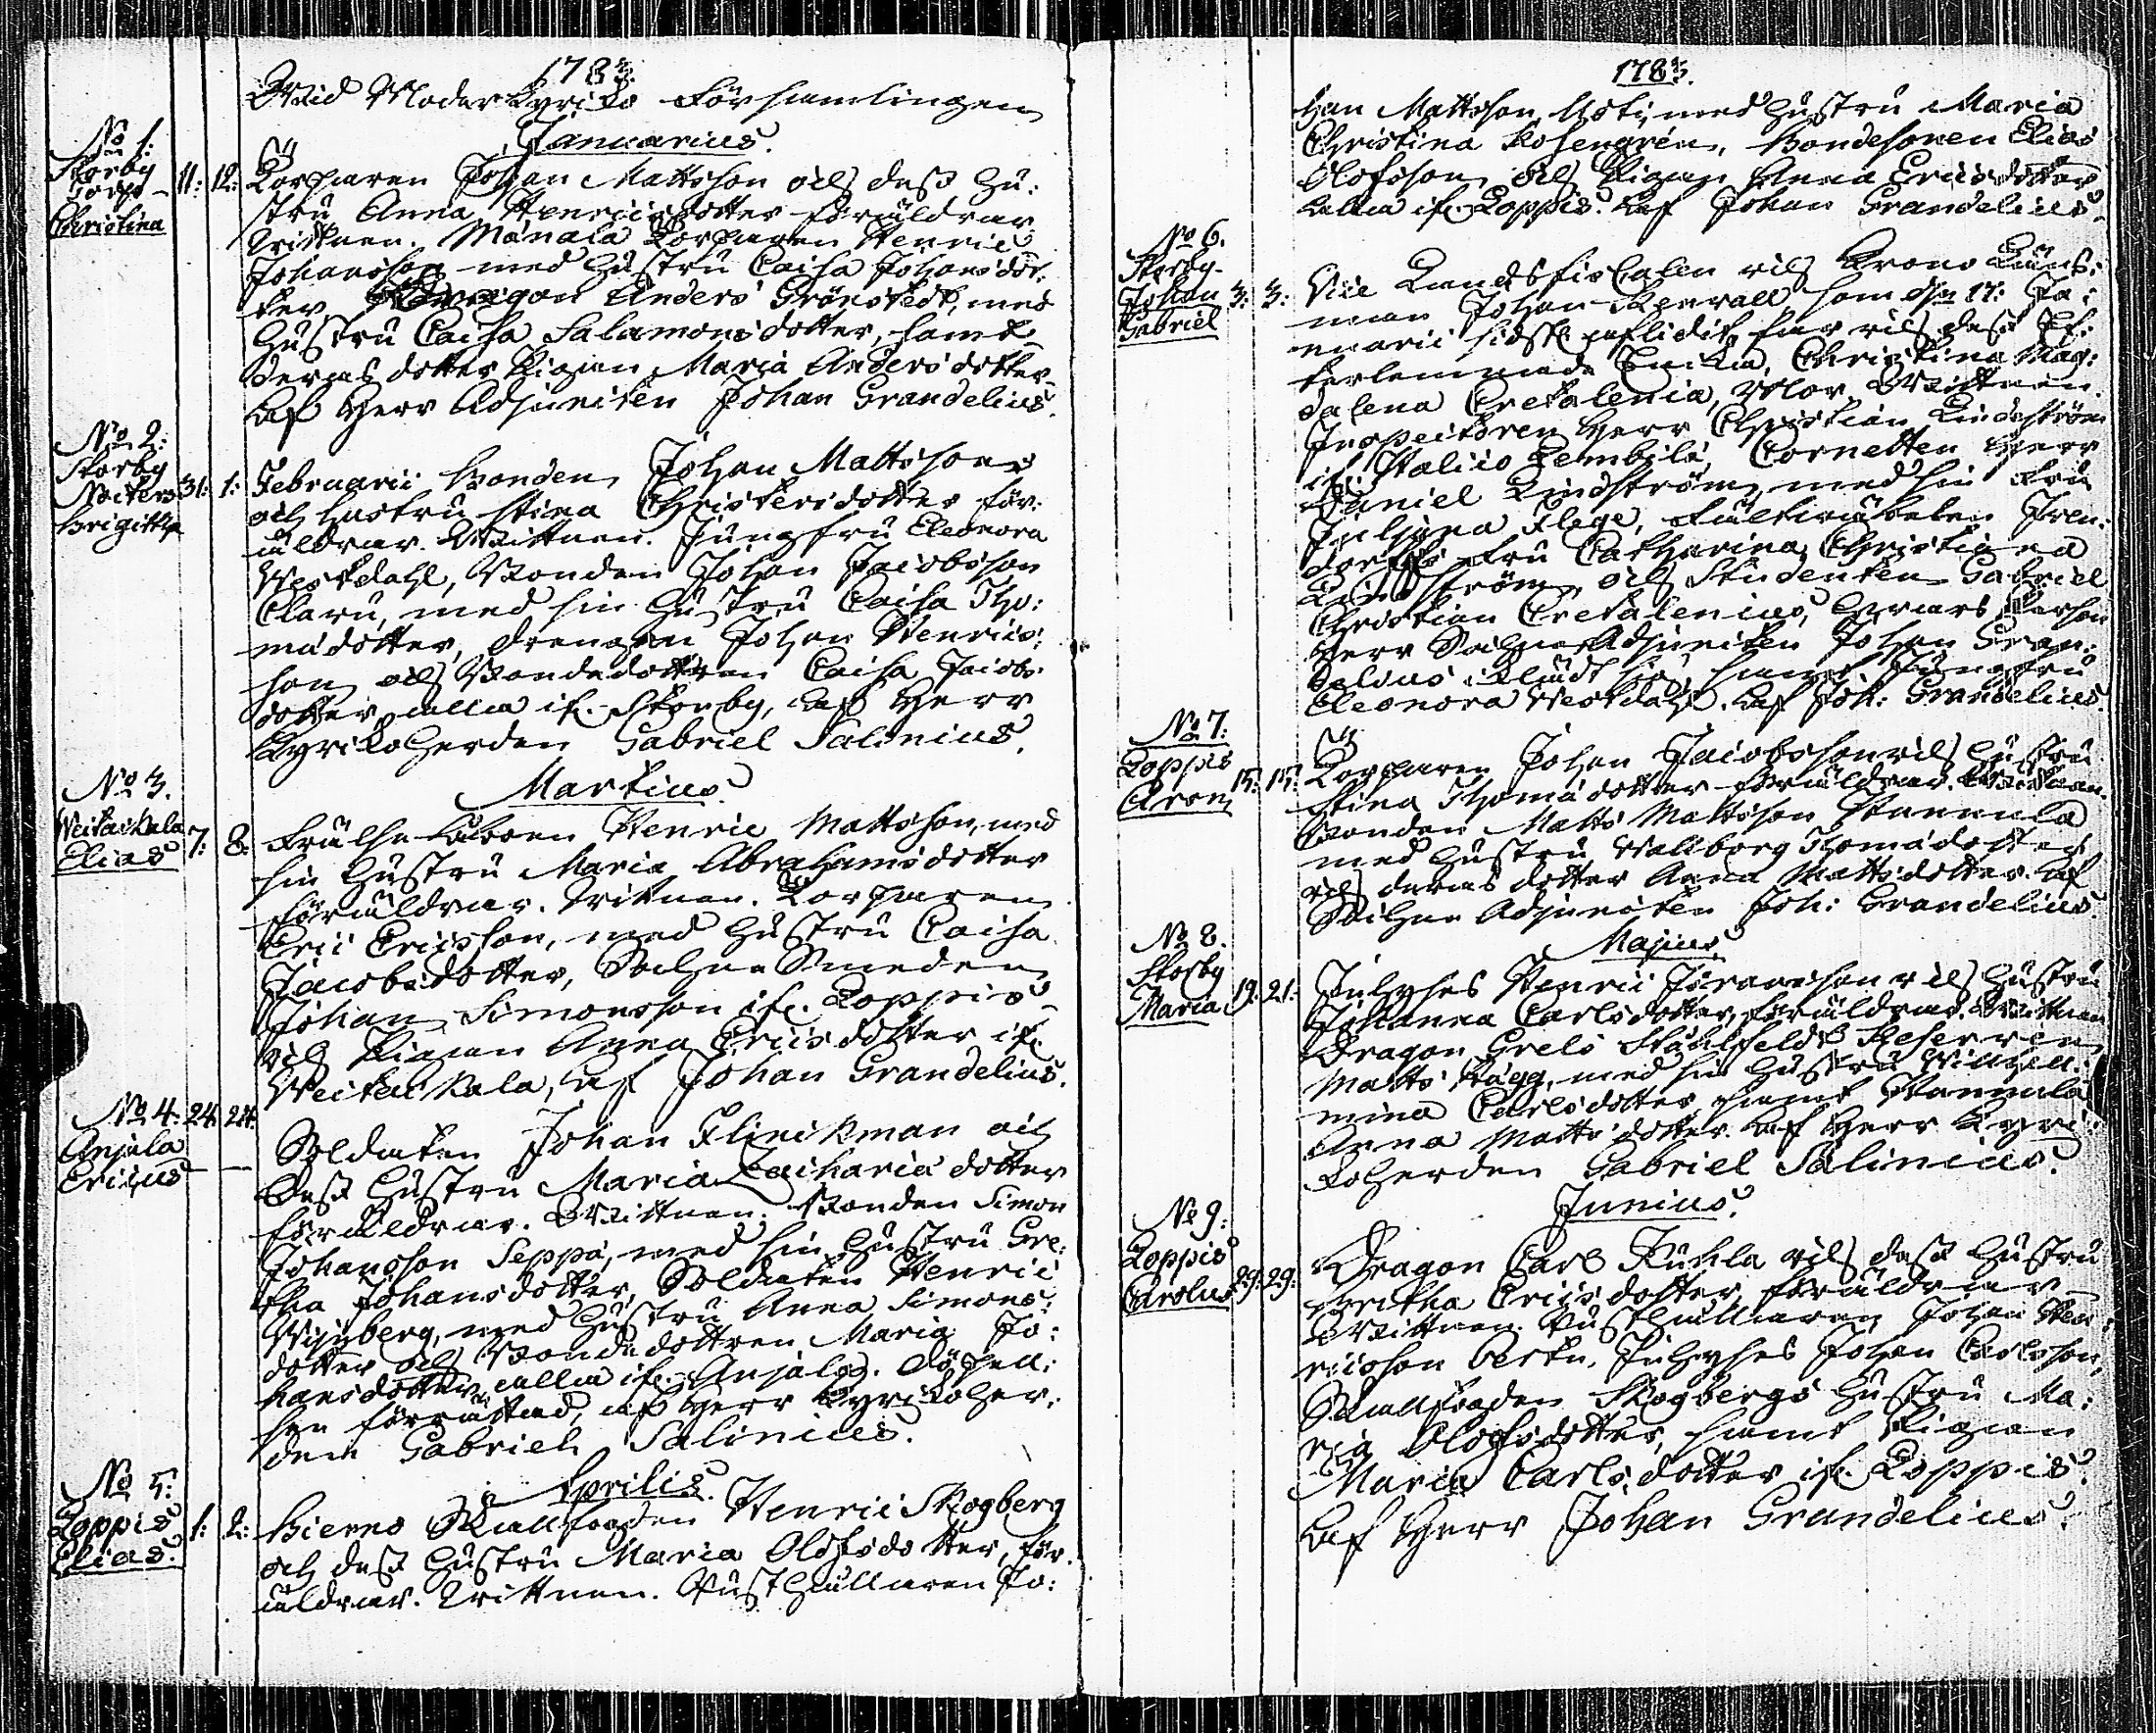 1783.
Wid Moder Kyrko församlingen
Januarius.
No 1:
Storby
Christina
11: 12:
Torparen Johan Mattsson och dess Hu:
stru Anna Henricsdotter föräldrar
Wittnen. Torparen Henric
Johansson med Hustru Caisa Johansdot:
ter, Anders Grönstedt, med
Hustru Caisa Salamonsdotter, samt
deras dotter Pigan Maria Andersdotter
af Herr Adjuncten Johan Grandelius.
No 2:
Storby
Brigitta
31: 1:
Februarii Bonden Johan Mattsson
och hustru Stina Christersdotter för:
äldrar. Wittnen. Jungfru Eleonora
Westdahl, Bonden Johan Jacobsson
Claru, med sin Hustru Caisa Tho:
madotter, drengen Johan Henrics:
son och Bondedottren Caisa Jacobs
dotter alla if. Storby, af Herr
Kyrkoherden Gabriel Salinius.
Martius
No 3.
Elias
7: 8:
Frälse Henric Mattsson, med
sin Hustru Maria Abrahamsdotter
föräldrar. Wittnen. Torparen
Eric Ericsson, med Hustru Caisa
Jacobsdotter, Sockne Smeden
Johan Simonsson if. Loppis
och Pigan Anna Ericsdotter if.
af Johan Grandelius.
No 4: 24. 24.
Anjala
Ericus
Soldaten Johan Flinckman och
dess Hustru Maria Zachariadotter
föräldrar. Wittnen. Bonden Simon
Johansson Seppä, med sin Hustru Gre:
tha Johansdotter, Soldaten Henric
med Hustru Anna Simons:
dotter och Bondedottren Maria Jo:
hansdotter, alla if. Anjala. Döpel:
sen förrättad, af Herr Kyrkoher:
den Gabriel Salinius.
Aprilis.
No 5:
Loppis
Elias.
1: 2:
Henric Skogberg
och dess Hustru Maria Olofsdotter, för
äldrar. Wittnen. Rusthållaren Jo:
1783.
han Mattsson med Hustru Maria
Christina Rosengrén, Bondesonen Elias
Olofsson och Pigan Anna Ericsdotter
alla if. Loppis. af Johan Grandelius.
No 6.
Storby
Johan
Gabriel
3: 3:
Vice Landsfiscalen och Krono Läns:
man Johan som den 17: Ja:
nuarii sidstl. aflidit far och dess Ef:
terlemnade Enka, Christina Mag:
dalena Cretalenia, Mor. Wittnen.
Inspectoren Herr Christian Lindström
Cornetten Herr
Daniel Lindström, med sin Fru
Juliana Flege,
Fru Catharina Christina
Lindström, och Studenten Gabriel
Christian Cretalenius,
Herr Sockne Adjuncten Johan Gran:
delius samt Jungfru
Eleonora Westdahl. af Joh: Grandelius.
No 7:
Loppis
Aron
15: 15:
Torparen Johan Jacobsson och Hustru
Stina Thomadotter föräldrar. Wittnen.
Bonden Matts Mattsson
med Hustru Wallborg Thomadotter
och deras dotter Anna Mattsdotter. af
Sockne Adjuncten Joh: Grandelius
Majus.
No 8.
Storby
Maria
19. 21:
Inhyses Henric och Hustru
Johanna Carlsdotter, föräldrar. Wittnen
Dragon Grels
Matts Hägg, med sin Hustru Wilhel:
mina Carlsdotter, samt
Anna Mattsdotter. af Herr Kyr:
koherden Gabriel Salinius.
Junius.
No 9:
Loppis
Carolus
29. 29:
Dragon Carl Kuhla och dess Hustru
Gretha Ericsdotter, föräldrar
Wittnen. Rusthållaren Johan Hen:
ricsson Inhyses Johan Carlsson,
Skogbergs Hustru Ma:
ria Olofsdotter, samt Pigan
Maria Carlsdotter if. Loppis.
af Herr Johan Grandelius.